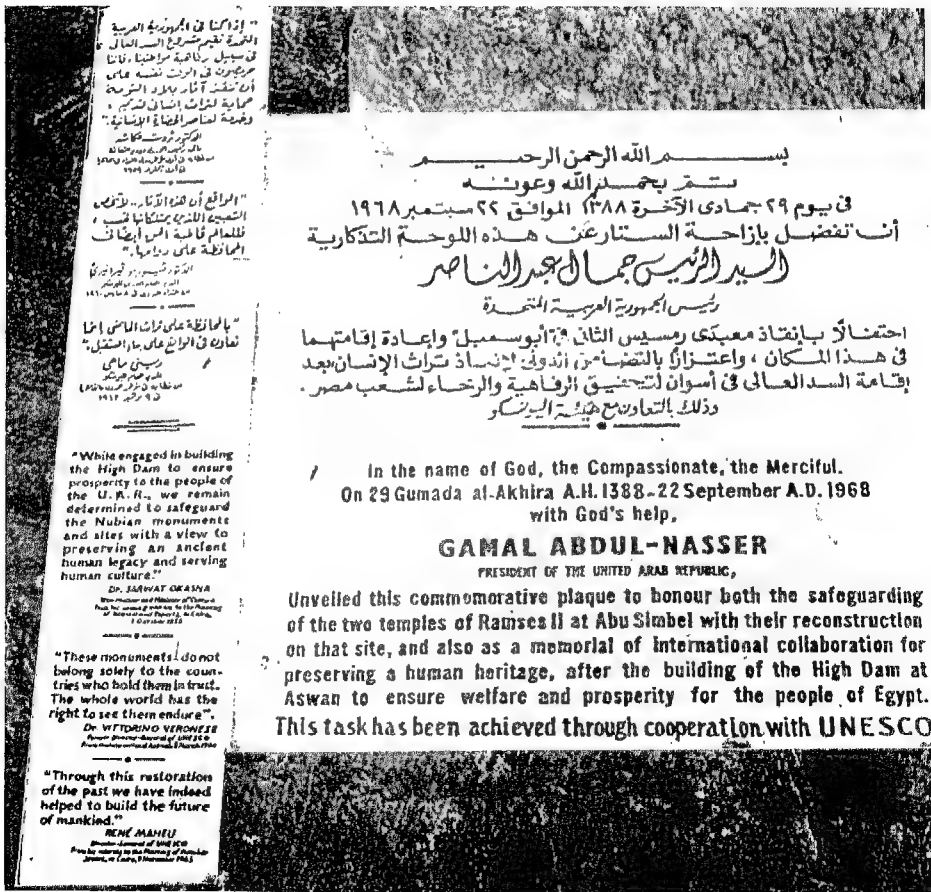 "إذا كنا فى الجمهورية العربية
المتحدة نقيم مشروع السد العالى
فى سبيل رفاهية مواطنينا، فإننا
حريصون فى الوقت نفسه على
أن ننقذ آثار بلاد النوبة
حماية لتراث إنسانى قديم،
وخدمة لعناصر الحضارة الإنسانية."
الدكتور ثروت عكاشه
"الواقع أن هذه الآثار.. لا تخص
الشعبين اللذين يمتلكانها فحسب،
فللعالم قاطبة الحق أيضا فى
المحافظة على دوامها."
"بالمحافظة على تراث الماضى إنما
نعاون فى الواقع على بناء المستقبل."
رينى ماهى
"While engaged in building
the High Dam to ensure
prosperity to the people of
the U.A.R., we remain
determined to safeguard
the Nubian monuments
and sites with a view to
preserving an ancient
human legacy and serving
human culture."
Dr. SARWAT OKASHA
"These monuments do not
belong solely to the coun-
tries who hold them in trust.
The whole world has the
right to see them endure".
Dr VITTORINO VERONESE
Former Director-General of UNESCO
"Through this restoration
of the past we have indeed
helped to build the future
of mankind."
RENÉ MAHEU
Director-General of UNESCO
بسم الله الرحمن الرحيم
تم بحمد الله وعونه
فى يوم ٢٩ جمادى الآخرة ١٣٨٨ الموافق ٢٢ سبتمبر ١٩٦٨
أن تفضل بإزاحة الستار عن هذه اللوحة التذكارية
السيد الرئيس جمال عبد الناصر
رئيس الجمهورية العربية المتحدة
احتفالا بإنقاذ معبدى رمسيس الثانى فى أبوسمبل وإعادة إقامتهما
فى هذا المكان، واعتزازا بالتضامن الدولى لإنقاذ تراث الإنسان بعد
إقامة السد العالى فى أسوان لتحقيق الرفاهية والرخاء لشعب مصر.
وذلك بالتعاون مع هيئة اليونسكو
In the name of God, the Compassionate, the Merciful.
On 29 Gumada al-Akhira A.H. 1388-22 September A.D. 1968
with God's help,
GAMAL ABDUL-NASSER
PRESIDENT OF THE UNITED ARAB REPUBLIC,
Unveiled this commemorative plaque to honour both the safeguarding
of the two temples of Ramses II at Abu Simbel with their reconstruction
on that site, and also as a memorial of international collaboration for
preserving a human heritage, after the building of the High Dam at
Aswan to ensure welfare and prosperity for the people of Egypt.
This task has been achieved through cooperation with UNESCO